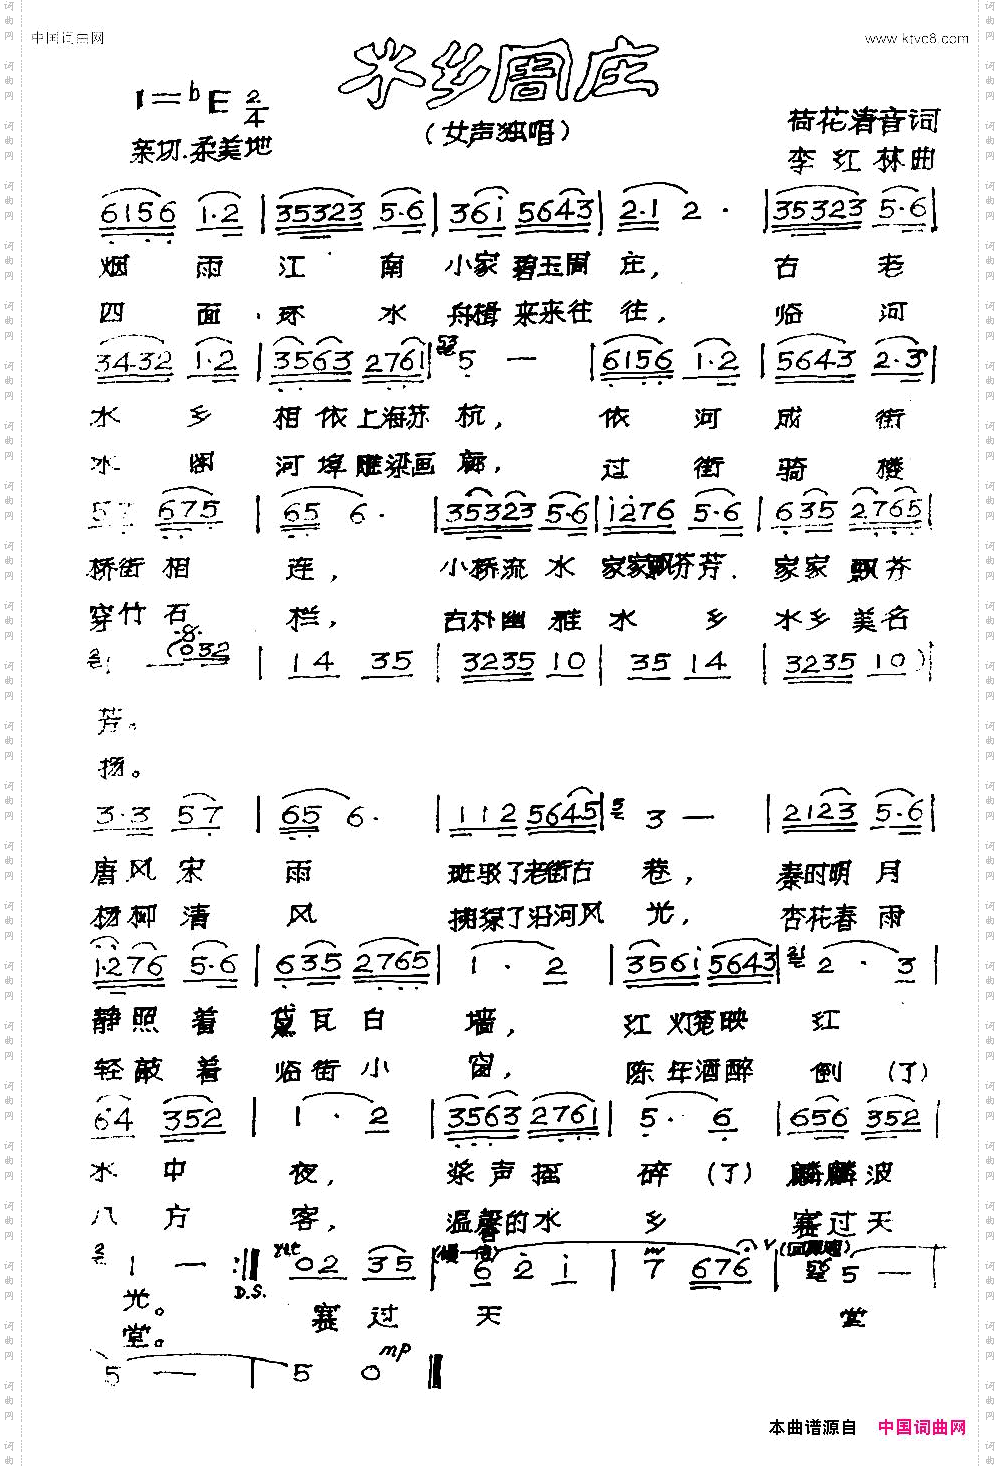 中国词曲网
www.ktvc8.com
水乡周庄
(女声独唱)
1=bE 2/4
亲切.柔美地
荷花清音词
李红林曲
6156 1·2 | 35323 5·6 | 361 5643 | 2·1 2· | 35323 5·6 |
烟雨江南小家碧玉周庄，古老
四面环水舟楫来来往往，临河
3432 1·2 | 3563 2761 | 5 — | 6156 1·2 | 5643 2·3 |
水乡相依上海苏杭，依河成街
水阁河埠雕梁画廊，过街骑楼
675 | 65 6· | 35323 5·6 | 1276 5·6 | 635 2765 |
桥街相连，小桥流水家家飘芬芳.家家飘芬
穿竹石栏，古朴幽雅水乡水乡美名
8
(032 | 14 35 | 3235 10 | 35 14 | 3235 10) |
芳。
扬。
3·3 57 | 65 6· | 112 5645 | 3 — | 2123 5·6 |
唐风宋雨斑驳了老街古巷，秦时明月
杨柳清风擁绿了沿河风光，杏花春雨
1·276 5·6 | 635 2765 | 1· 2 | 3561 5643 | 2· 3 |
静照着黛瓦白墙，红灯笼映红
轻敲着临街小窗，陈年酒醉倒(了)
64 352 | 1· 2 | 3563 2761 | 5· 6 | 656 352 |
水中夜，桨声摇碎(了)麟麟波
八方客，温馨的水乡赛过天
1 — :‖ 02 35 | 6 2 1 | 7 676 | 5 — |
D.S.
(慢一倍)
光。赛过天堂
堂。
5 — | 5 0 ‖
mp
本曲谱源自 中国词曲网